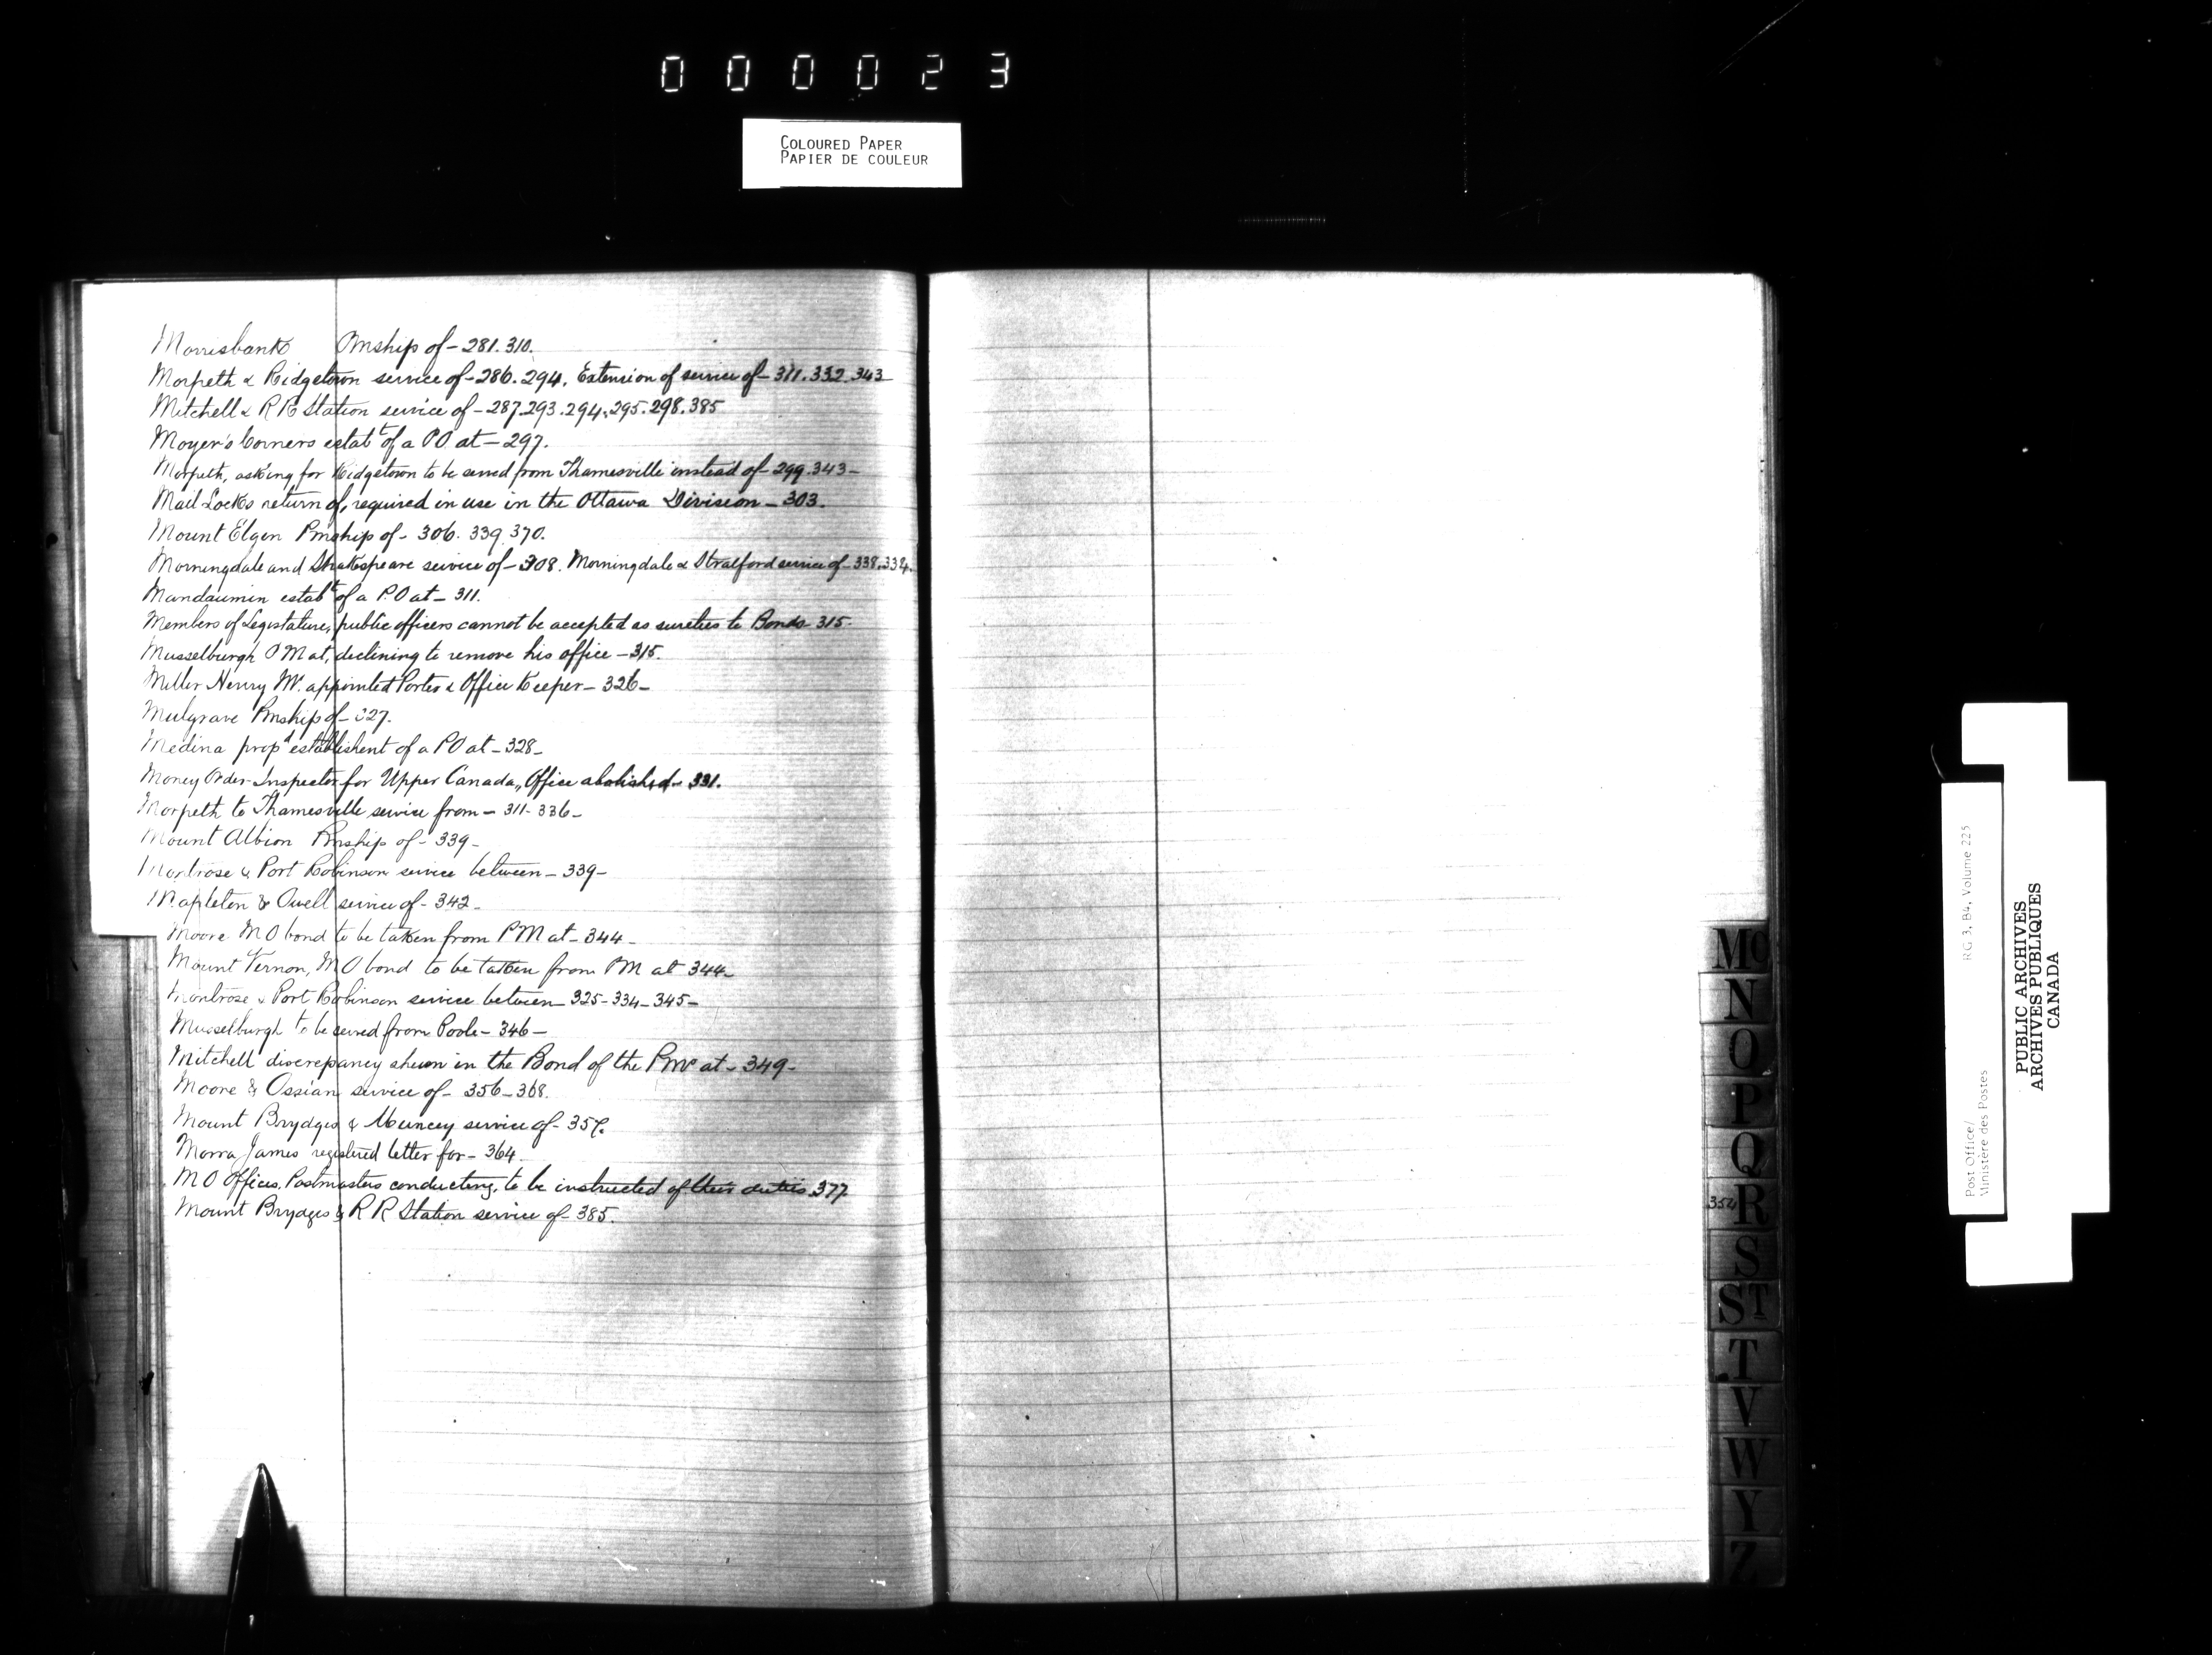 000023
COLOURED PAPER
PAPIER DE COULEUR
Morrisbank Pmship of - 281. 310.
Morpeth & Ridgetown service of - 286. 294. Extension of service of - 311. 332. 343
Mitchell & R R Station service of - 287. 293. 294. 295. 298. 385
Moyer's Corners estabt of a PO at - 297.
Morpeth, asking for Ridgetown to be served from Thamesville instead of - 299. 343 -
Mail Locks return of, required in use in the Ottawa Division - 303.
Mount Elgin Pmship of - 306. 339. 370.
Morningdale and Shakespeare service of - 308. Morningdale & Stratford service of - 338. 334.
Mandaumin estabt of a PO at - 311.
Members of Legislature, public officers cannot be accepted as sureties to Bonds 315.
Musselburgh PM at, declining to remove his office - 315.
Miller Henry W. appointed Porter & Office Keeper - 326 -
Mulgrave Pmship of - 327.
Medina propd establishent of a PO at - 328 -
Money Order Inspector for Upper Canada, Office abolished - 331.
Morpeth to Thamesville service from - 311 - 336 -
Mount Albion Pmship of - 339 -
Montrose & Port Robinson service between - 339 -
Mapleton & Orwell service of - 342 -
Moore MO bond to be taken from PM at - 344 -
Mount Vernon, MO bond to be taken from PM at 344 -
Montrose & Port Robinson service between - 325 - 334 - 345 -
Musselburgh to be served from Poole - 346 -
Mitchell discrepancy shewn in the Bond of the Pmr at - 349 -
Moore & Ossian service of - 356 - 368.
Mount Brydges & Muncey service of - 357.
Morra James registered letter for - 364.
MO Offices, Postmasters conducting, to be instructed of their duties 377
Mount Brydges & R R Station service of - 385.
Mc
N
O
P
Q
354 R
S
ST
T
V
W
Y
Z
Post Office/ RG 3, B4, Volume 225
Ministère des Postes
PUBLIC ARCHIVES
ARCHIVES PUBLIQUES
CANADA